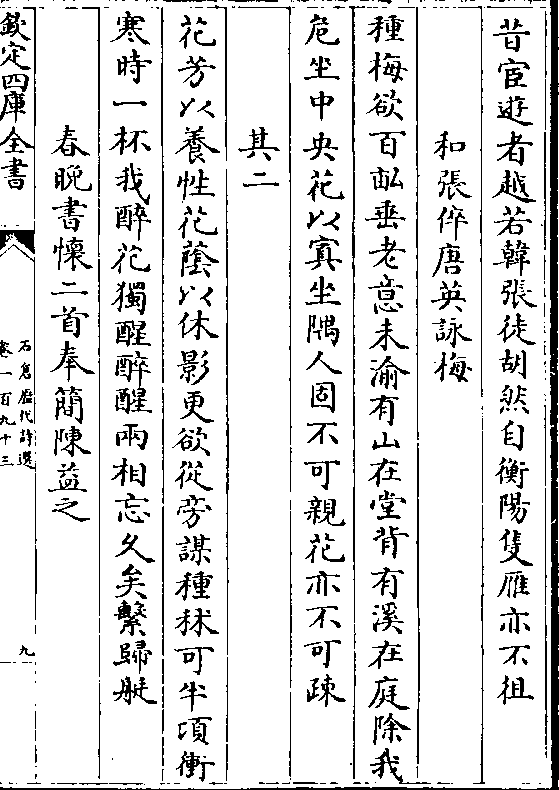 昔宦遊者越若韓張徒胡然自衡陽隻雁亦不徂
和張倅唐英詠梅
種梅欲百畝垂老意未渝有山在堂背有溪在庭除我
危坐中央花以寘坐隅人固不可親花亦不可疎
其二
花芳以養性花蔭以休影更欲從旁謀種秫可半項衝
寒時一杯我醉花獨醒醉醒兩相忘久矣繫歸艇
春晚書懷二首奉簡陳益之
欽定四庫全書
石倉歷代詩選
卷一百九十三
九